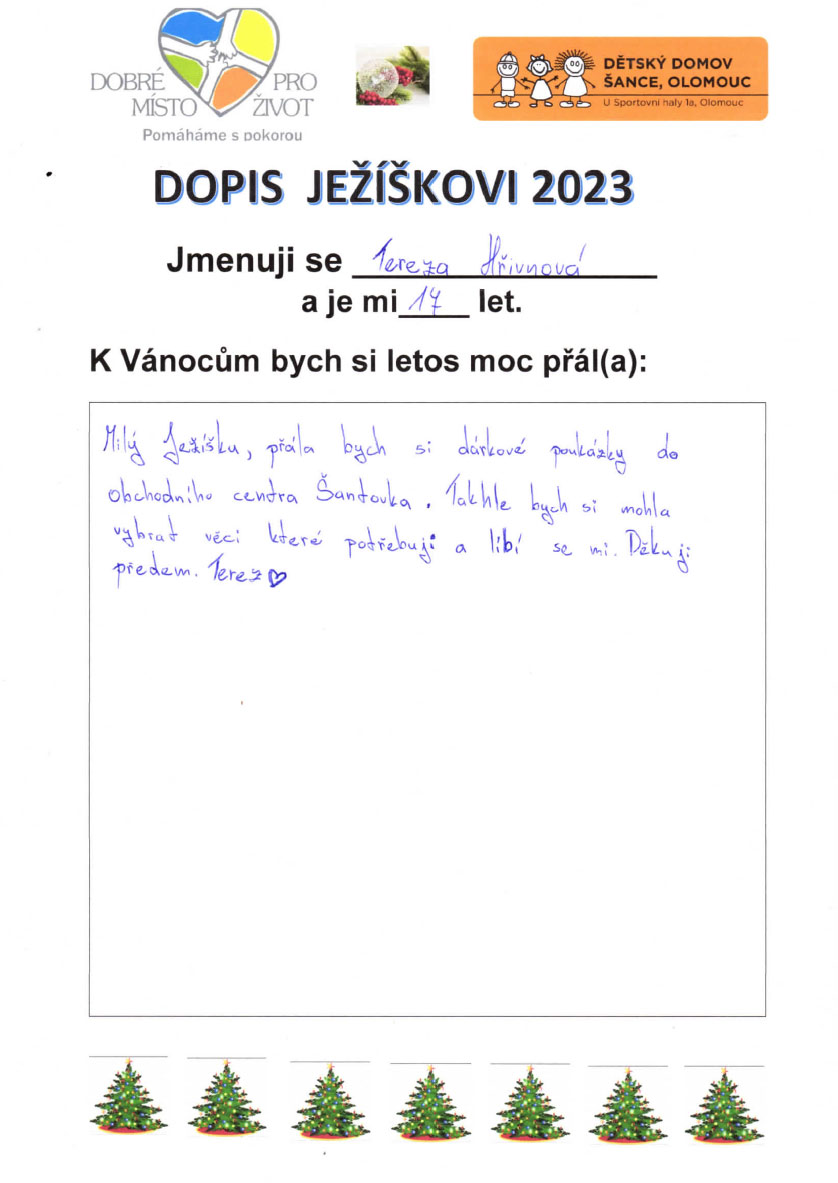 DOBRÉ PRO
MÍSTO ŽIVOT
Pomáháme s pokorou
DĚTSKÝ DOMOV
ŠANCE, OLOMOUC
U Sportovní haly 1a, Olomouc
DOPIS JEŽÍŠKOVI 2023
Jmenuji se Tereza Hřivnová
a je mi 17 let.
K Vánocům bych si letos moc přál(a):
Milý Ježíšku, přála bych si dárkové poukázky do
obchodního centra Šantovka. Takhle bych si mohla
vybrat věci které potřebuji a líbí se mi. Děkuji
předem. Terez♡